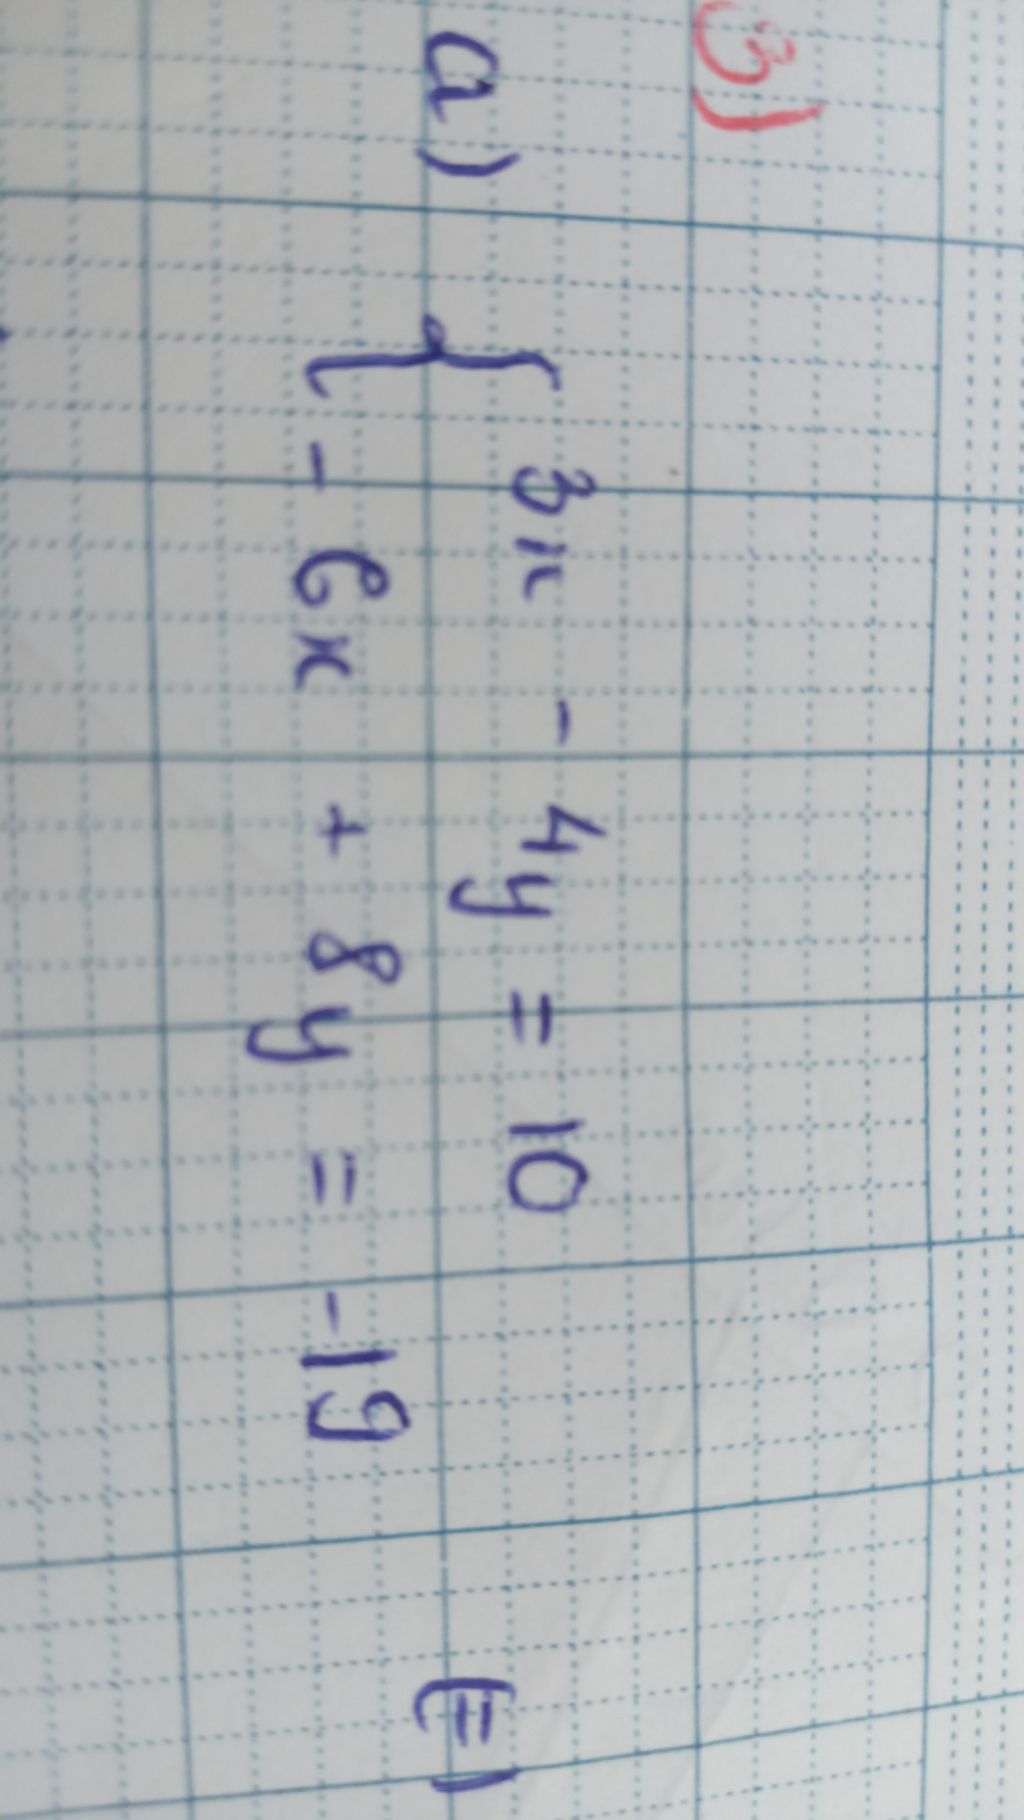 3)
a) { 3x - 4y = 10
- 6x + 8y = -19 (E)